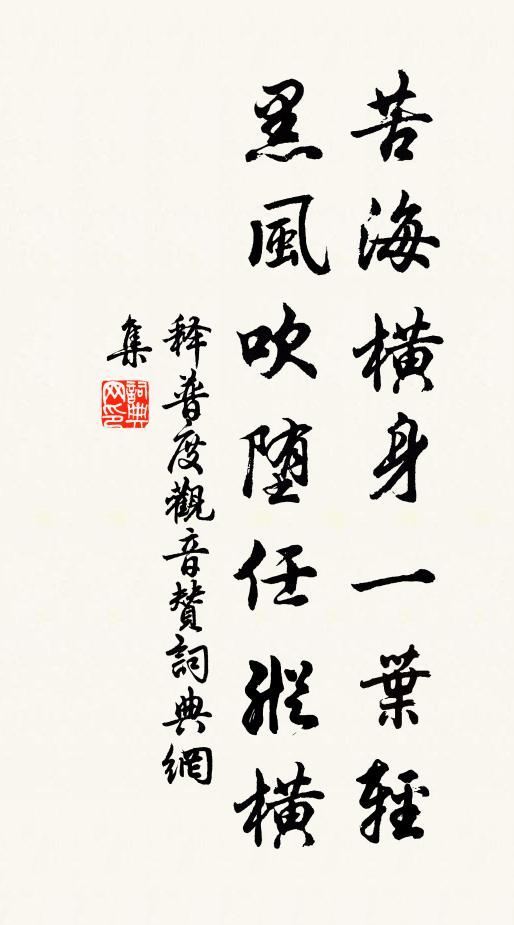 苦海橫身一葉輕
黑風吹堕任縱橫
释普度觀音贊詞典網
集
詞典網印